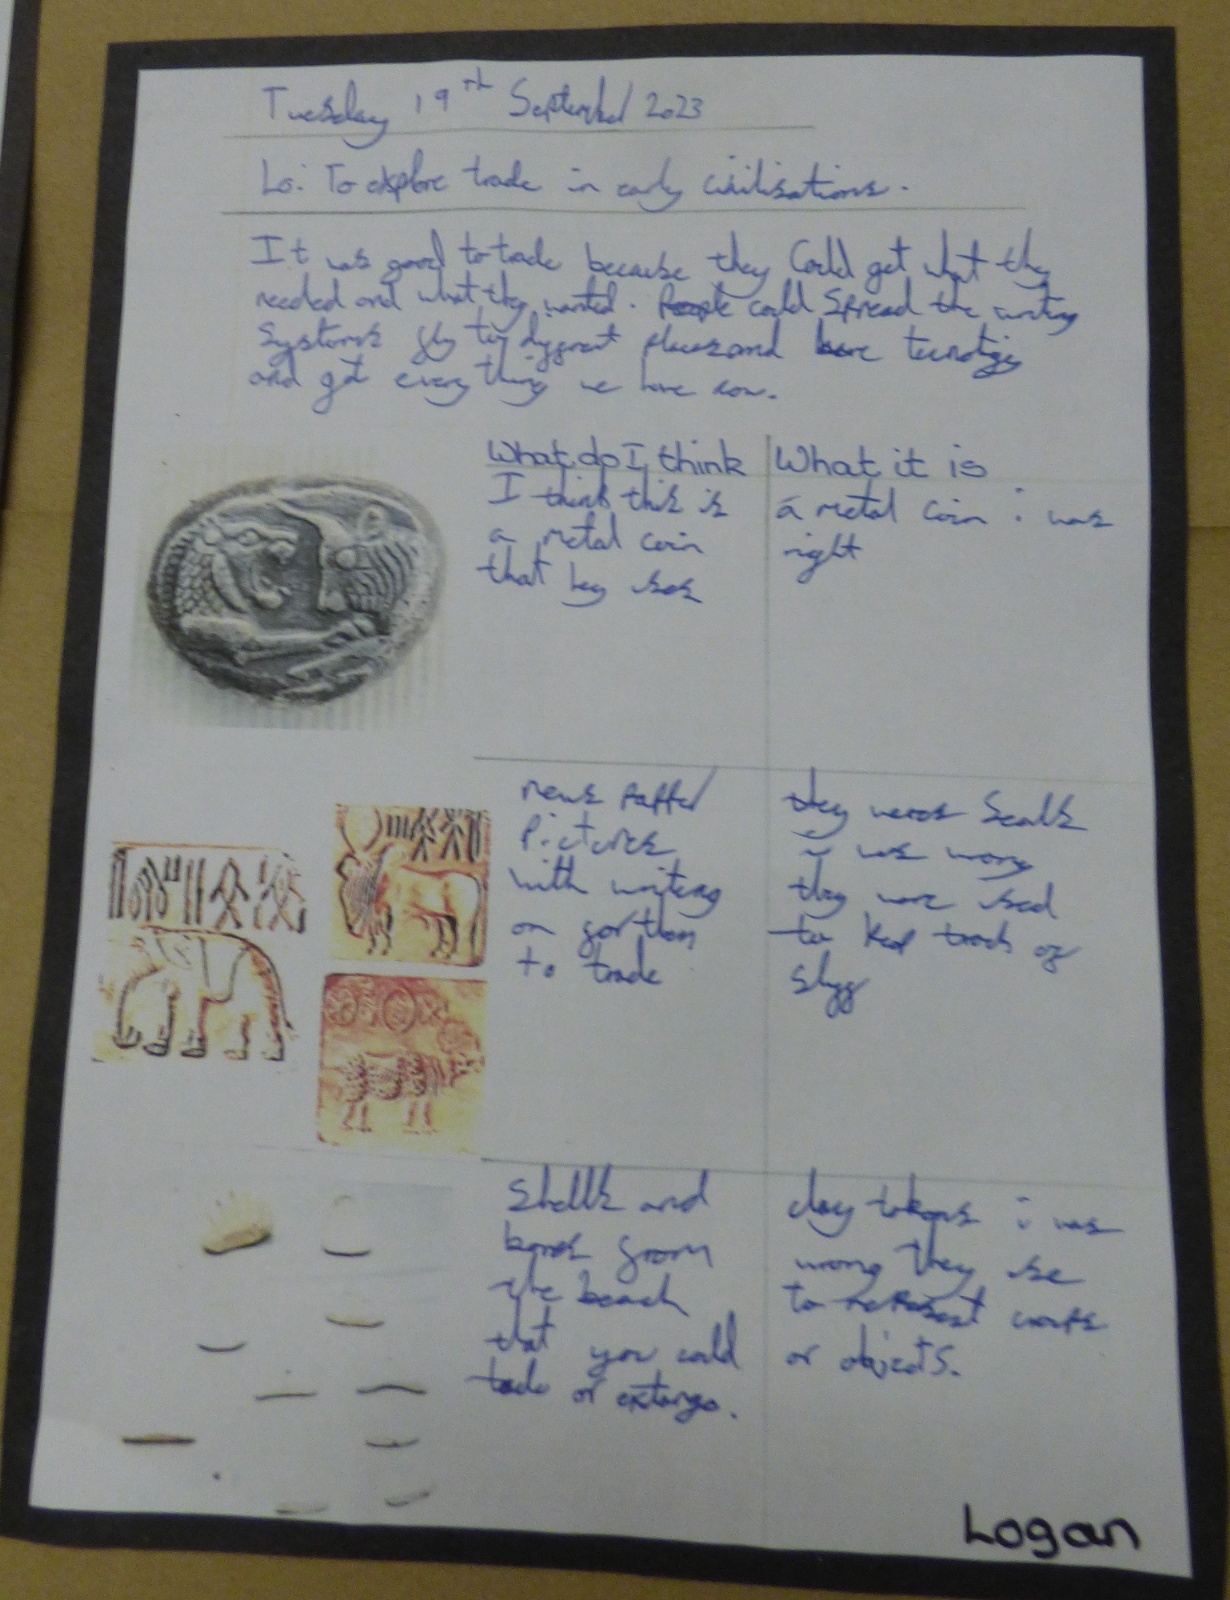 Tuesday 19th September 2023
Lo: To explore trade in early civilisations.
It was good to trade because they Could get what they
needed and what they wanted. People could Spread the writing
Systems to different places and
and get every thing we have now.
What do I think
I think this is
a metal coin
that
What it is
a metal coin i was
right
news
Pictures
with writing
on
to trade
they
i was
they were used
to track of
Shells and
from
the beach
that you could
or
clay tokens i was
wrong they use
to
or objects.
Logan